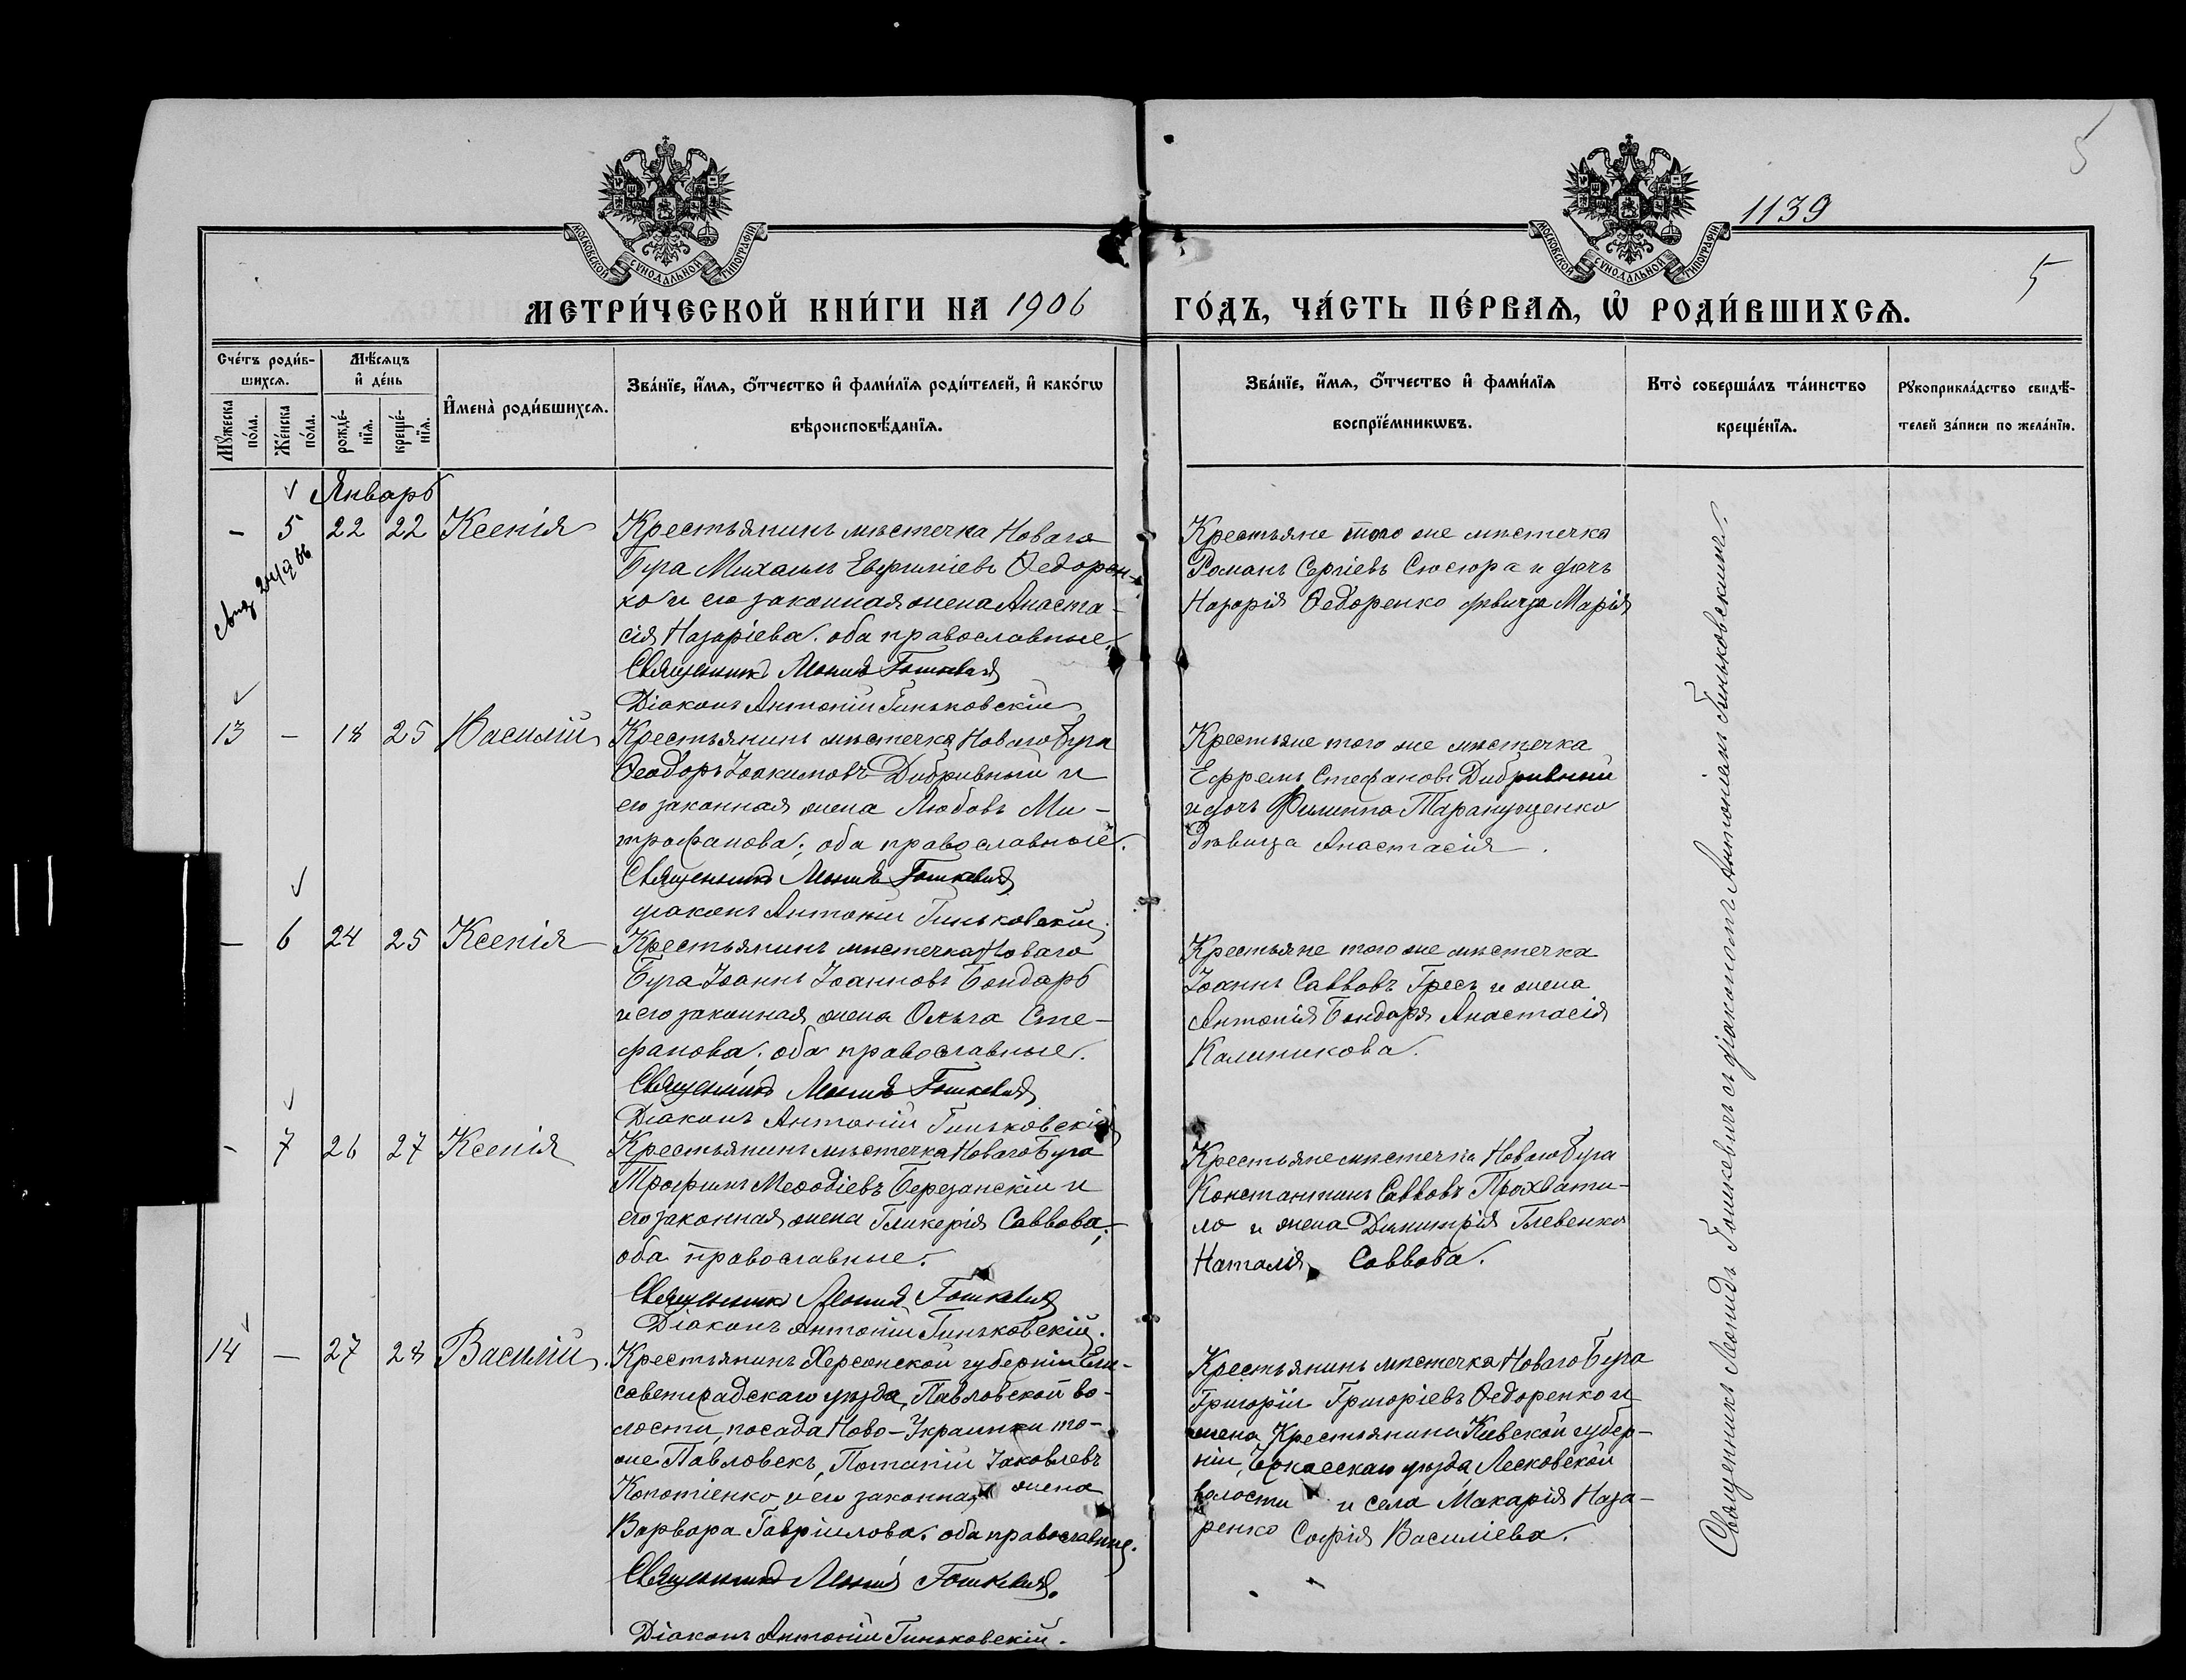 5
1139
5
МОСКОВСКОЙ СѴНОДАЛЬНОЙ ТИПОГРАФІИ
МОСКОВСКОЙ СѴНОДАЛЬНОЙ ТИПОГРАФІИ
МЕТРИ́ЧЕСКОЙ КНИ́ГИ НА 1906 ГО́ДЪ, ЧА́СТЬ ПЕ́РВАѦ, Ѡ҆ РОДИ́ВШИХСѦ.
Сче́тъ роди́в-
шихсѧ.
Мѣ́сѧцъ
и҆ де́нь
Мꙋ́жеска
по́ла.
Же́нска
по́ла.
рожде́-
нїѧ.
креще́-
нїѧ.
И҆мена̀ роди́вшихсѧ.
Зва́нїе, и҆́мѧ, ѻ҆́тчество и҆ фами́лїѧ роди́телей, и҆ како́гѡ
вѣроисповѣ́данїѧ.
Зва́нїе, и҆́мѧ, ѻ҆́тчество и҆ фами́лїѧ
воспрїе́мникѡвъ.
Кто̀ соверша́лъ та́инство
креще́нїѧ.
Рꙋкоприкла́дство свидѣ́-
телей за́писи по жела́нїю.
Январь
- 5 22 22 Ксенія
Крестьянинъ мѣстечка Новаго
Буга Михаилъ Евфиміевъ Ѳедорен-
ко и его законная жена Анаста-
сія Назаріева. оба православные.
Священникъ Леонидъ Гошкевичъ
Діаконъ Антоній Гиньковскій
Крестьяне того же мѣстечка
Романъ Сергіевъ Сюсюра и дочь
Назарія Ѳедоренко дѣвица Марія
13 - 18 25 Василій
Крестьянинъ мѣстечка Новаго Буга
Ѳеодоръ Іоакимовъ Дибривный и
его законная жена Любовь Ми-
трофанова; оба православные.
Священникъ Леонидъ Гошкевичъ
діаконъ Антоній Гиньковскій.
Крестьяне того же мѣстечка
Ефремъ Стефановъ Дибривный
и дочь Филиппа Таранущенко
дѣвица Анастасія.
- 6 24 25 Ксенія
Крестьянинъ мѣстечка Новаго
Буга Іоаннъ Іоанновъ Бондарь
и его законная жена Ольга Сте-
фанова. оба православные.
Священникъ Леонидъ Гошкевичъ
Діаконъ Антоній Гиньковскій
Крестьяне того же мѣстечка
Іоаннъ Саввовъ Гресь и жена
Антонія Бондаря Анастасія
Калиникова.
- 7 26 27 Ксенія
Крестьянинъ мѣстечка Новаго Буга
Трофимъ Меѳодіевъ Березанскій и
его законная жена Гликерія Саввова;
оба православные.
Священникъ Леонидъ Гошкевичъ
Діаконъ Антоній Гиньковскій.
Крестьяне мѣстечка Новаго Буга
Константинъ Саввовъ Прохвати-
ло и жена Димитрія Глевенко
Наталія Саввова.
14 - 27 28 Василій.
Крестьянинъ Херсонской губерніи Ели-
саветградскаго уѣзда, Павловской во-
лости, посада Ново-Украинки то-
же Павловскъ, Потапій Іаковлевъ
Копотіенко и его законная жена
Варвара Гавріилова. оба православные.
Священникъ Леонидъ Гошкевичъ.
Діаконъ Антоній Гиньковскій.
Крестьянинъ мѣстечка Новаго Буга
Григорій Григоріевъ Ѳедоренко и
жена Крестьянина Кіевской губер-
ніи, Черкасскаго уѣзда Лесковской
волости и села Макарія Наза-
ренко Софія Василіева.
Священникъ Леонидъ Гошкевичъ съ діакономъ Антоніемъ Гиньковскимъ.